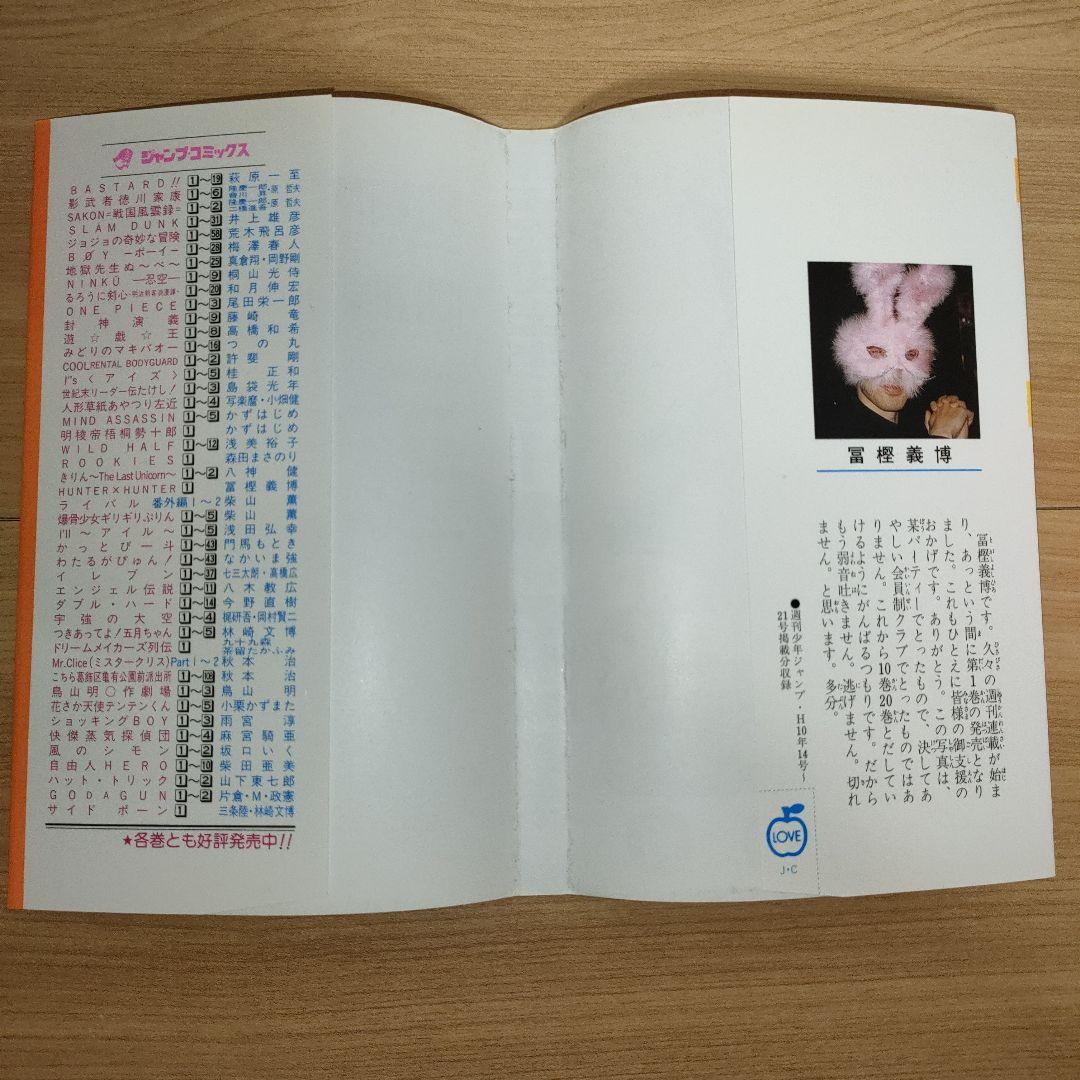 ジャンプ・コミックス
BASTARD!! 1〜19 萩原一至
影武者徳川家康 1〜6 隆慶一郎・原哲夫 會川昇
SAKON=戦国風雲録= 1〜2 隆慶一郎・原哲夫 二橋進吾
SLAM DUNK 1〜31 井上雄彦
ジョジョの奇妙な冒険 1〜58 荒木飛呂彦
BØY －ボーイ－ 1〜28 梅澤春人
地獄先生ぬ〜べ〜 1〜25 真倉翔・岡野剛
NINKU －忍空－ 1〜9 桐山光侍
るろうに剣心・明治剣客浪漫譚・ 1〜20 和月伸宏
ONE PIECE 1〜3 尾田栄一郎
封神演義 1〜9 藤崎竜
遊☆戯☆王 1〜8 高橋和希
みどりのマキバオー 1〜16 つの丸
COOL RENTAL BODYGUARD 1〜2 許斐剛
I"s〈アイズ〉 1〜5 桂正和
世紀末リーダー伝たけし! 1〜3 島袋光年
人形草紙あやつり左近 1〜4 写楽麿・小畑健
MIND ASSASSIN 1〜5 かずはじめ
明稜帝梧桐勢十郎 1 かずはじめ
WILD HALF 1〜12 浅美裕子
ROOKIES 1 森田まさのり
きりん〜The Last Unicorn〜 1〜2 八神健
HUNTER×HUNTER 1 冨樫義博
ライバル 番外編1〜2 柴山薫
爆骨少女ギリギリぷりん 1〜5 柴山薫
I'll 〜アイル〜 1〜5 浅田弘幸
かっとび一斗 1〜43 門馬もとき
わたるがぴゅん! 1〜43 なかいま強
イレブン 1〜37 七三太朗・高橋広
エンジェル伝説 1〜11 八木教広
ダブル・ハード 1〜14 今野直樹
宇強の大空 1〜4 梶研吾・岡村賢二
つきあってよ!五月ちゃん 1〜5 林崎文博
ドリームメイカーズ列伝 1 九十九森 茶留たかふみ
Mr.Clice(ミスタークリス) Part1〜2 秋本治
こちら葛飾区亀有公園前派出所 1〜108 秋本治
鳥山明○作劇場 1〜3 鳥山明
花さか天使テンテンくん 1〜5 小栗かずまた
ショッキングBOY 1〜3 雨宮淳
快傑蒸気探偵団 1〜4 麻宮騎亜
風のシモン 1〜2 坂口いく
自由人HERO 1〜10 柴田亜美
ハット・トリック 1〜2 山下東七郎
GODAGUN 1〜2 片倉・M・政憲
サイドボーン 1 三条陸・林崎文博
★各巻とも好評発売中!!
冨樫義博
冨樫義博です。久々の週刊連載が始ま
り、あっという間に第1巻の発売となり
ました。これもひとえに皆様の御支援の
おかげです。ありがとう。この写真は、
某パーティーでとったもので、決してあ
やしい会員制クラブでとったものではあ
りません。これから10巻20巻とだしてい
けるようにがんばるつもりです。だから
もう弱音吐きません。逃げません。切れ
ません。と思います。多分。
●週刊少年ジャンプ・H10年14号〜
21号掲載分収録
LOVE
J・C